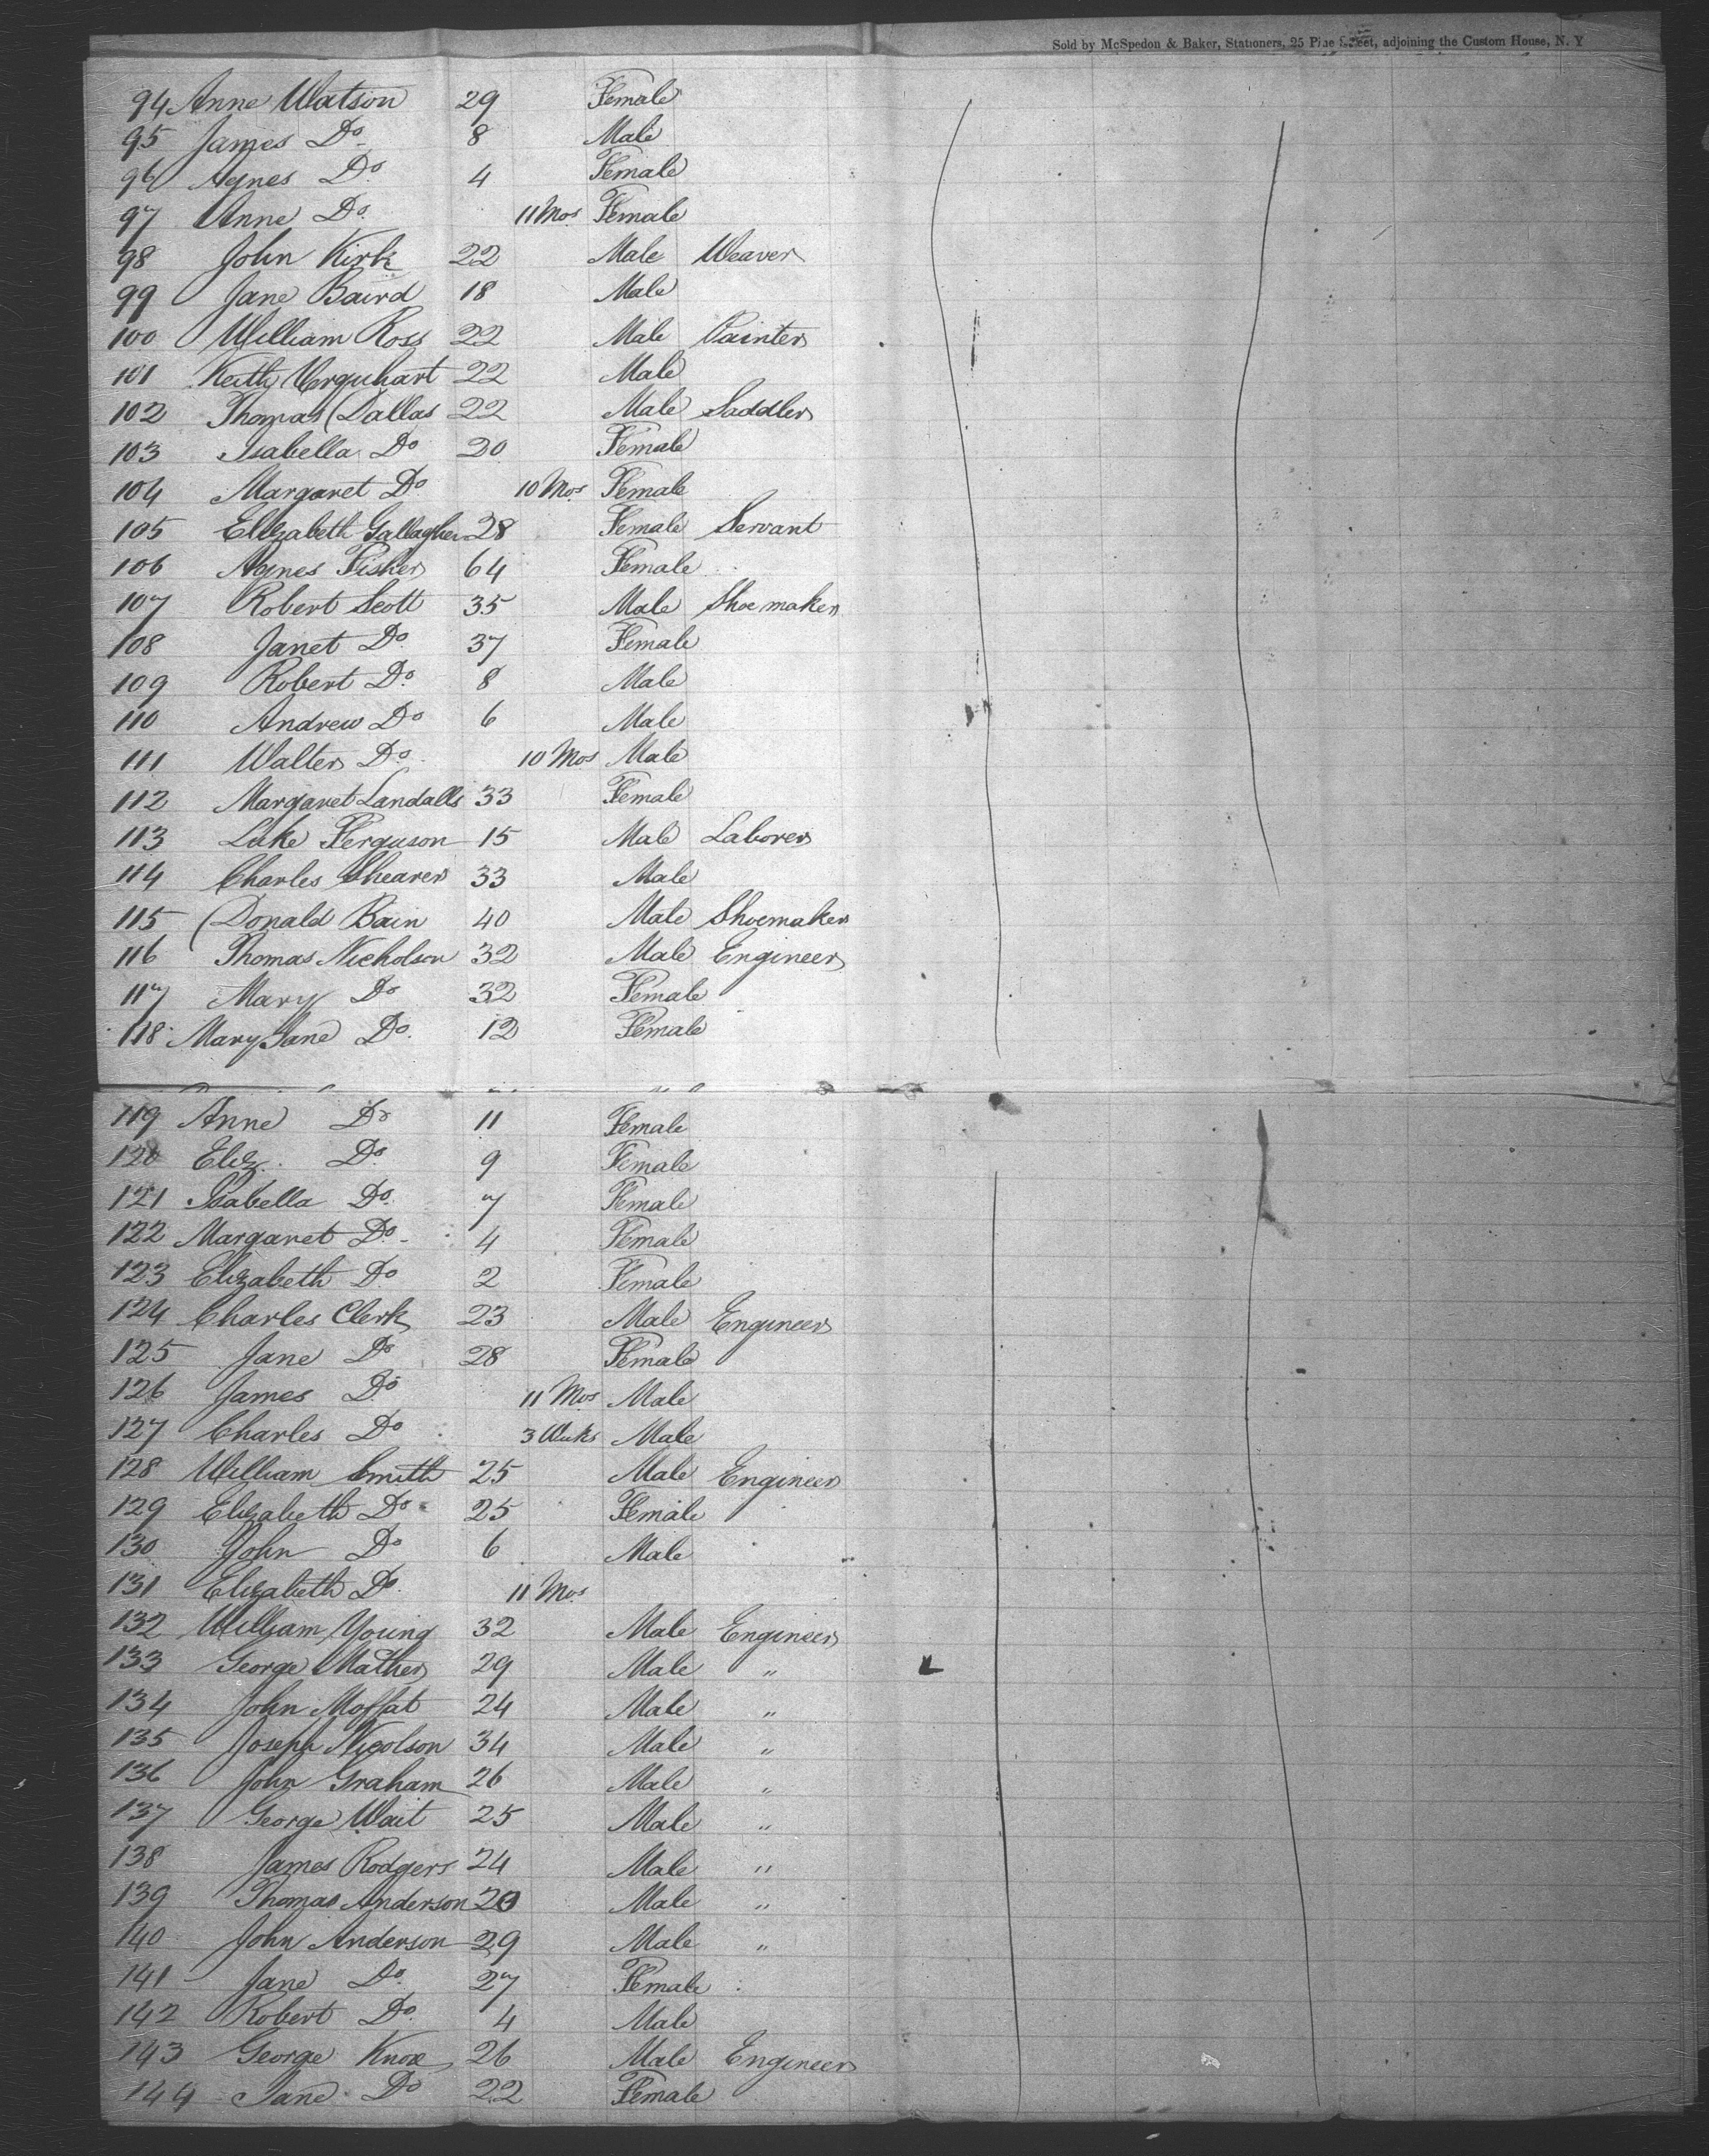 Sold by McSpedon & Baker, Stationers, 25 Pine Street, adjoining the Custom House, N. Y
94 Anne Watson 29 Female
95 James Do 8 Male
96 Agnes Do 4 Female
97 Anne Do 11 Mos Female
98 John Kirk 22 Male Weaver
99 Jane Baird 18 Male
100 William Ross 22 Male Painter
101 Keith Urquhart 22 Male
102 Thomas Dallas 22 Male Saddler
103 Isabella Do 20 Female
104 Margaret Do 10 Mos Female
105 Elizabeth Gallagher 28 Female Servant
106 Agnes Fisher 64 Female
107 Robert Scott 35 Male Shoemaker
108 Janet Do 37 Female
109 Robert Do 8 Male
110 Andrew Do 6 Male
111 Walter Do 10 Mos Male
112 Margaret Landalls 33 Female
113 Luke Ferguson 15 Male Laborer
114 Charles Shearer 33 Male
115 Donald Bain 40 Male Shoemaker
116 Thomas Nicholson 32 Male Engineer
117 Mary Do 32 Female
118 Mary Jane Do 12 Female
119 Anne Do 11 Female
120 Eliz. Do 9 Female
121 Isabella Do 7 Female
122 Margaret Do 4 Female
123 Elizabeth Do 2 Female
124 Charles Clerk 23 Male Engineer
125 Jane Do 28 Female
126 James Do 11 Mos Male
127 Charles Do 3 Weeks Male
128 William Smith 25 Male Engineer
129 Elizabeth Do 25 Female
130 John Do 6 Male
131 Elizabeth Do 11 Mos
132 William Young 32 Male Engineer
133 George Mather 29 Male "
134 John Moffat 24 Male "
135 Joseph Nicolson 34 Male "
136 John Graham 26 Male "
137 George Wait 25 Male "
138 James Rodgers 24 Male "
139 Thomas Anderson 20 Male "
140 John Anderson 29 Male "
141 Jane Do 27 Female
142 Robert Do 4 Male
143 George Knox 26 Male Engineer
144 Jane Do 22 Female